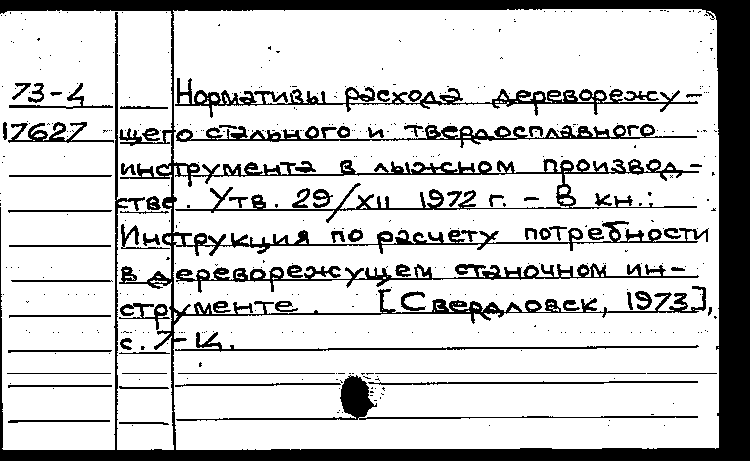 73-4 Нормативы расхода дереворежу-
17627 щего стального и твердосплавного
инструмента в лыжном производ-
стве. Утв. 29/XII 1972 г. - В кн.:
Инструкция по расчету потребности
в дереворежущем станочном ин-
струменте. [Свердловск, 1973],
с. 7-14.